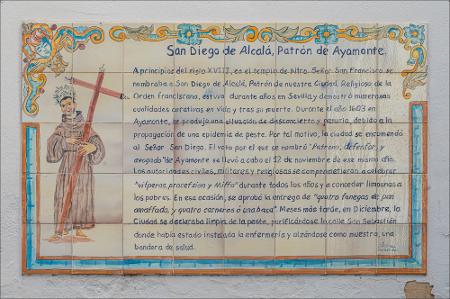 San Diego de Alcalá, Patrón de Ayamonte.
A principios del siglo XVIII, en el templo de Ntro. Señor San Francisco se
nombraba a San Diego de Alcalá, Patrón de nuestra Ciudad. Religioso de la
Orden franciscana, estuvo durante años en Sevilla y demostró numerosas
cualidades caritativas en vida y tras su muerte. Durante el año 1603 en
Ayamonte, se produjo una situación de desconcierto y penuria, debido a la
propagación de una epidemia de peste. Por tal motivo, la ciudad se encomendó
al Señor San Diego. El voto por el que se nombró "Patrono, defensor, y
avogado" de Ayamonte se llevó a cabo el 12 de noviembre de ese mismo año.
Las autoridades civiles, militares y religiosas se comprometieron a celebrar
"vísperas, procefsion y Miffa" durante todos los años y a conceder limosnas a
los pobres. En esa ocasión, se aprobó la entrega de "quatro fanegas de pan
amaffado, y quatro carneros ó una baca". Meses más tarde, en Diciembre, la
Ciudad se declaraba limpia de la peste, purificándose la calle San Sebastián
donde había estado instalada la enfermería y alzándose como muestra, una
bandera de salud.